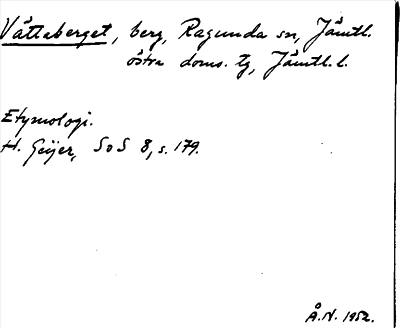 Våttaberget, berg, Ragunda sn, Jämtl.
östra doms. tg, Jämtl. l.
Etymologi.
H. Geijer, SoS 8, s. 179.
Å.N. 1952.